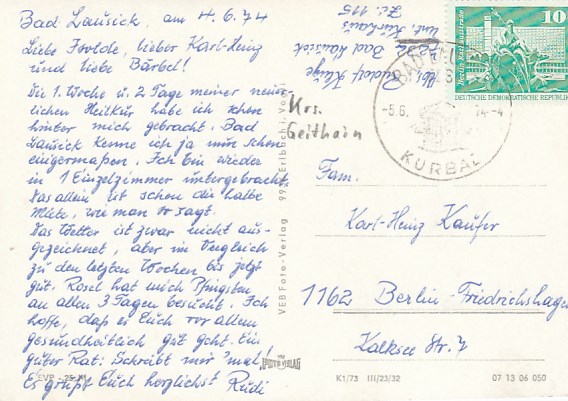 Bad Lausick, am 4.6.74
Liebe Isolde, lieber Karl-Heinz
und liebe Bärbel!
Die 1. Woche u. 2 Tage meiner neuer-
lichen Heilkur habe ich schon
hinter mich gebracht. Bad
Lausick kenne ich ja nun schon
einigermaßen. Ich bin wieder
in 1 Einzelzimmer untergebracht.
Das allein ist schon die halbe
Miete, wie man so sagt.
Das Wetter ist zwar nicht aus-
gezeichnet, aber im Vergleich
zu den letzten Wochen bis jetzt
gut. Rosel hat mich Pfingsten
an allen 3 Tagen besucht. Ich
hoffe, daß es Euch vor allem
gesundheitlich gut geht. Ein
guter Rat: Schreibt mir 'mal!
Es grüßt Euch herzlichst Rudi
EVP
Abs. Rudolf Kluge
7232 Bad Lausick
Kurhaus
Zi. 115
Krs.
Geithain
10
DEUTSCHE DEMOKRATISCHE REPUBLIK
BAD
-5.6. 74-4
KURBAD
VEB Foto-Verlag 992 Erlbach i. V.
FOTO VERLAG
Fam.
Karl-Heinz Kaufer
1162 Berlin-Friedrichshagen
Kalksee Str. 7
K1/73 III/23/32 07 13 06 050